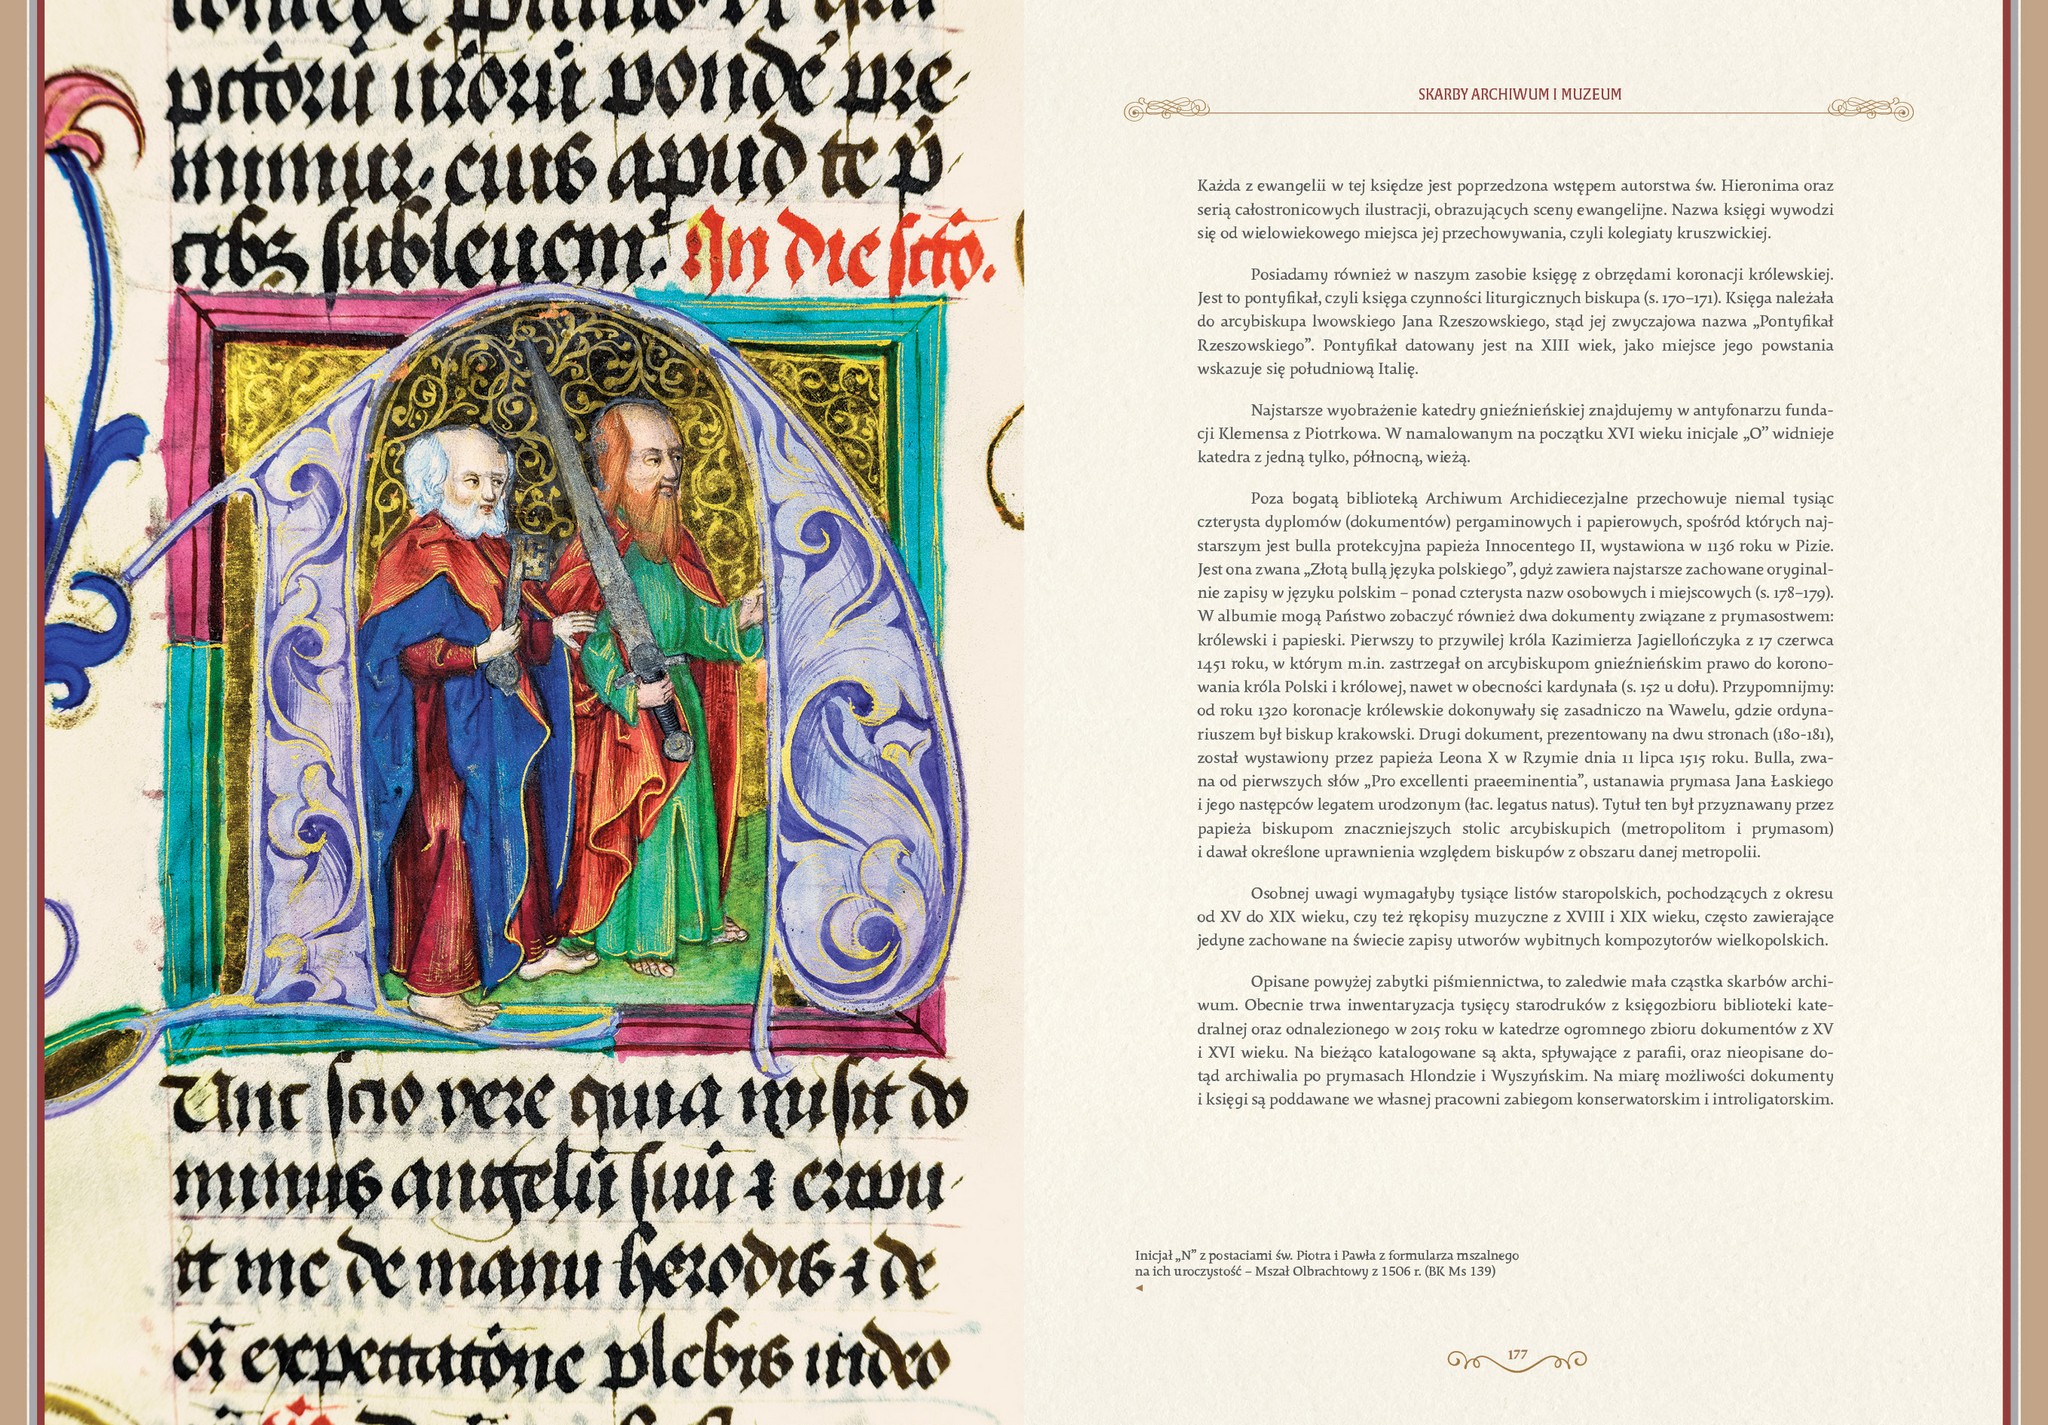 pctorū ur̄orū ponde pre-
mimur. eius apud te p̄-
cibꝫ subleuem̄. In die sctō.
Unc scio vere quia misit do
minus angelū suū ⁊ eripu-
it me de manu herodis ⁊ de
oī expectatiōne plebis iudeo
SKARBY ARCHIWUM I MUZEUM
Każda z ewangelii w tej księdze jest poprzedzona wstępem autorstwa św. Hieronima oraz
serią całostronicowych ilustracji, obrazujących sceny ewangelijne. Nazwa księgi wywodzi
się od wielowiekowego miejsca jej przechowywania, czyli kolegiaty kruszwickiej.
Posiadamy również w naszym zasobie księgę z obrzędami koronacji królewskiej.
Jest to pontyfikał, czyli księga czynności liturgicznych biskupa (s. 170–171). Księga należała
do arcybiskupa lwowskiego Jana Rzeszowskiego, stąd jej zwyczajowa nazwa „Pontyfikał
Rzeszowskiego”. Pontyfikał datowany jest na XIII wiek, jako miejsce jego powstania
wskazuje się południową Italię.
Najstarsze wyobrażenie katedry gnieźnieńskiej znajdujemy w antyfonarzu funda-
cji Klemensa z Piotrkowa. W namalowanym na początku XVI wieku inicjale „O” widnieje
katedra z jedną tylko, północną, wieżą.
Poza bogatą biblioteką Archiwum Archidiecezjalne przechowuje niemal tysiąc
czterysta dyplomów (dokumentów) pergaminowych i papierowych, spośród których naj-
starszym jest bulla protekcyjna papieża Innocentego II, wystawiona w 1136 roku w Pizie.
Jest ona zwana „Złotą bullą języka polskiego”, gdyż zawiera najstarsze zachowane oryginal-
nie zapisy w języku polskim – ponad czterysta nazw osobowych i miejscowych (s. 178–179).
W albumie mogą Państwo zobaczyć również dwa dokumenty związane z prymasostwem:
królewski i papieski. Pierwszy to przywilej króla Kazimierza Jagiellończyka z 17 czerwca
1451 roku, w którym m.in. zastrzegał on arcybiskupom gnieźnieńskim prawo do korono-
wania króla Polski i królowej, nawet w obecności kardynała (s. 152 u dołu). Przypomnijmy:
od roku 1320 koronacje królewskie dokonywały się zasadniczo na Wawelu, gdzie ordyna-
riuszem był biskup krakowski. Drugi dokument, prezentowany na dwu stronach (180-181),
został wystawiony przez papieża Leona X w Rzymie dnia 11 lipca 1515 roku. Bulla, zwa-
na od pierwszych słów „Pro excellenti praeeminentia”, ustanawia prymasa Jana Łaskiego
i jego następców legatem urodzonym (łac. legatus natus). Tytuł ten był przyznawany przez
papieża biskupom znaczniejszych stolic arcybiskupich (metropolitom i prymasom)
i dawał określone uprawnienia względem biskupów z obszaru danej metropolii.
Osobnej uwagi wymagałyby tysiące listów staropolskich, pochodzących z okresu
od XV do XIX wieku, czy też rękopisy muzyczne z XVIII i XIX wieku, często zawierające
jedyne zachowane na świecie zapisy utworów wybitnych kompozytorów wielkopolskich.
Opisane powyżej zabytki piśmiennictwa, to zaledwie mała cząstka skarbów archi-
wum. Obecnie trwa inwentaryzacja tysięcy starodruków z księgozbioru biblioteki kate-
dralnej oraz odnalezionego w 2015 roku w katedrze ogromnego zbioru dokumentów z XV
i XVI wieku. Na bieżąco katalogowane są akta, spływające z parafii, oraz nieopisane do-
tąd archiwalia po prymasach Hlondzie i Wyszyńskim. Na miarę możliwości dokumenty
i księgi są poddawane we własnej pracowni zabiegom konserwatorskim i introligatorskim.
Inicjał „N” z postaciami św. Piotra i Pawła z formularza mszalnego
na ich uroczystość – Mszał Olbrachtowy z 1506 r. (BK Ms 139)
177